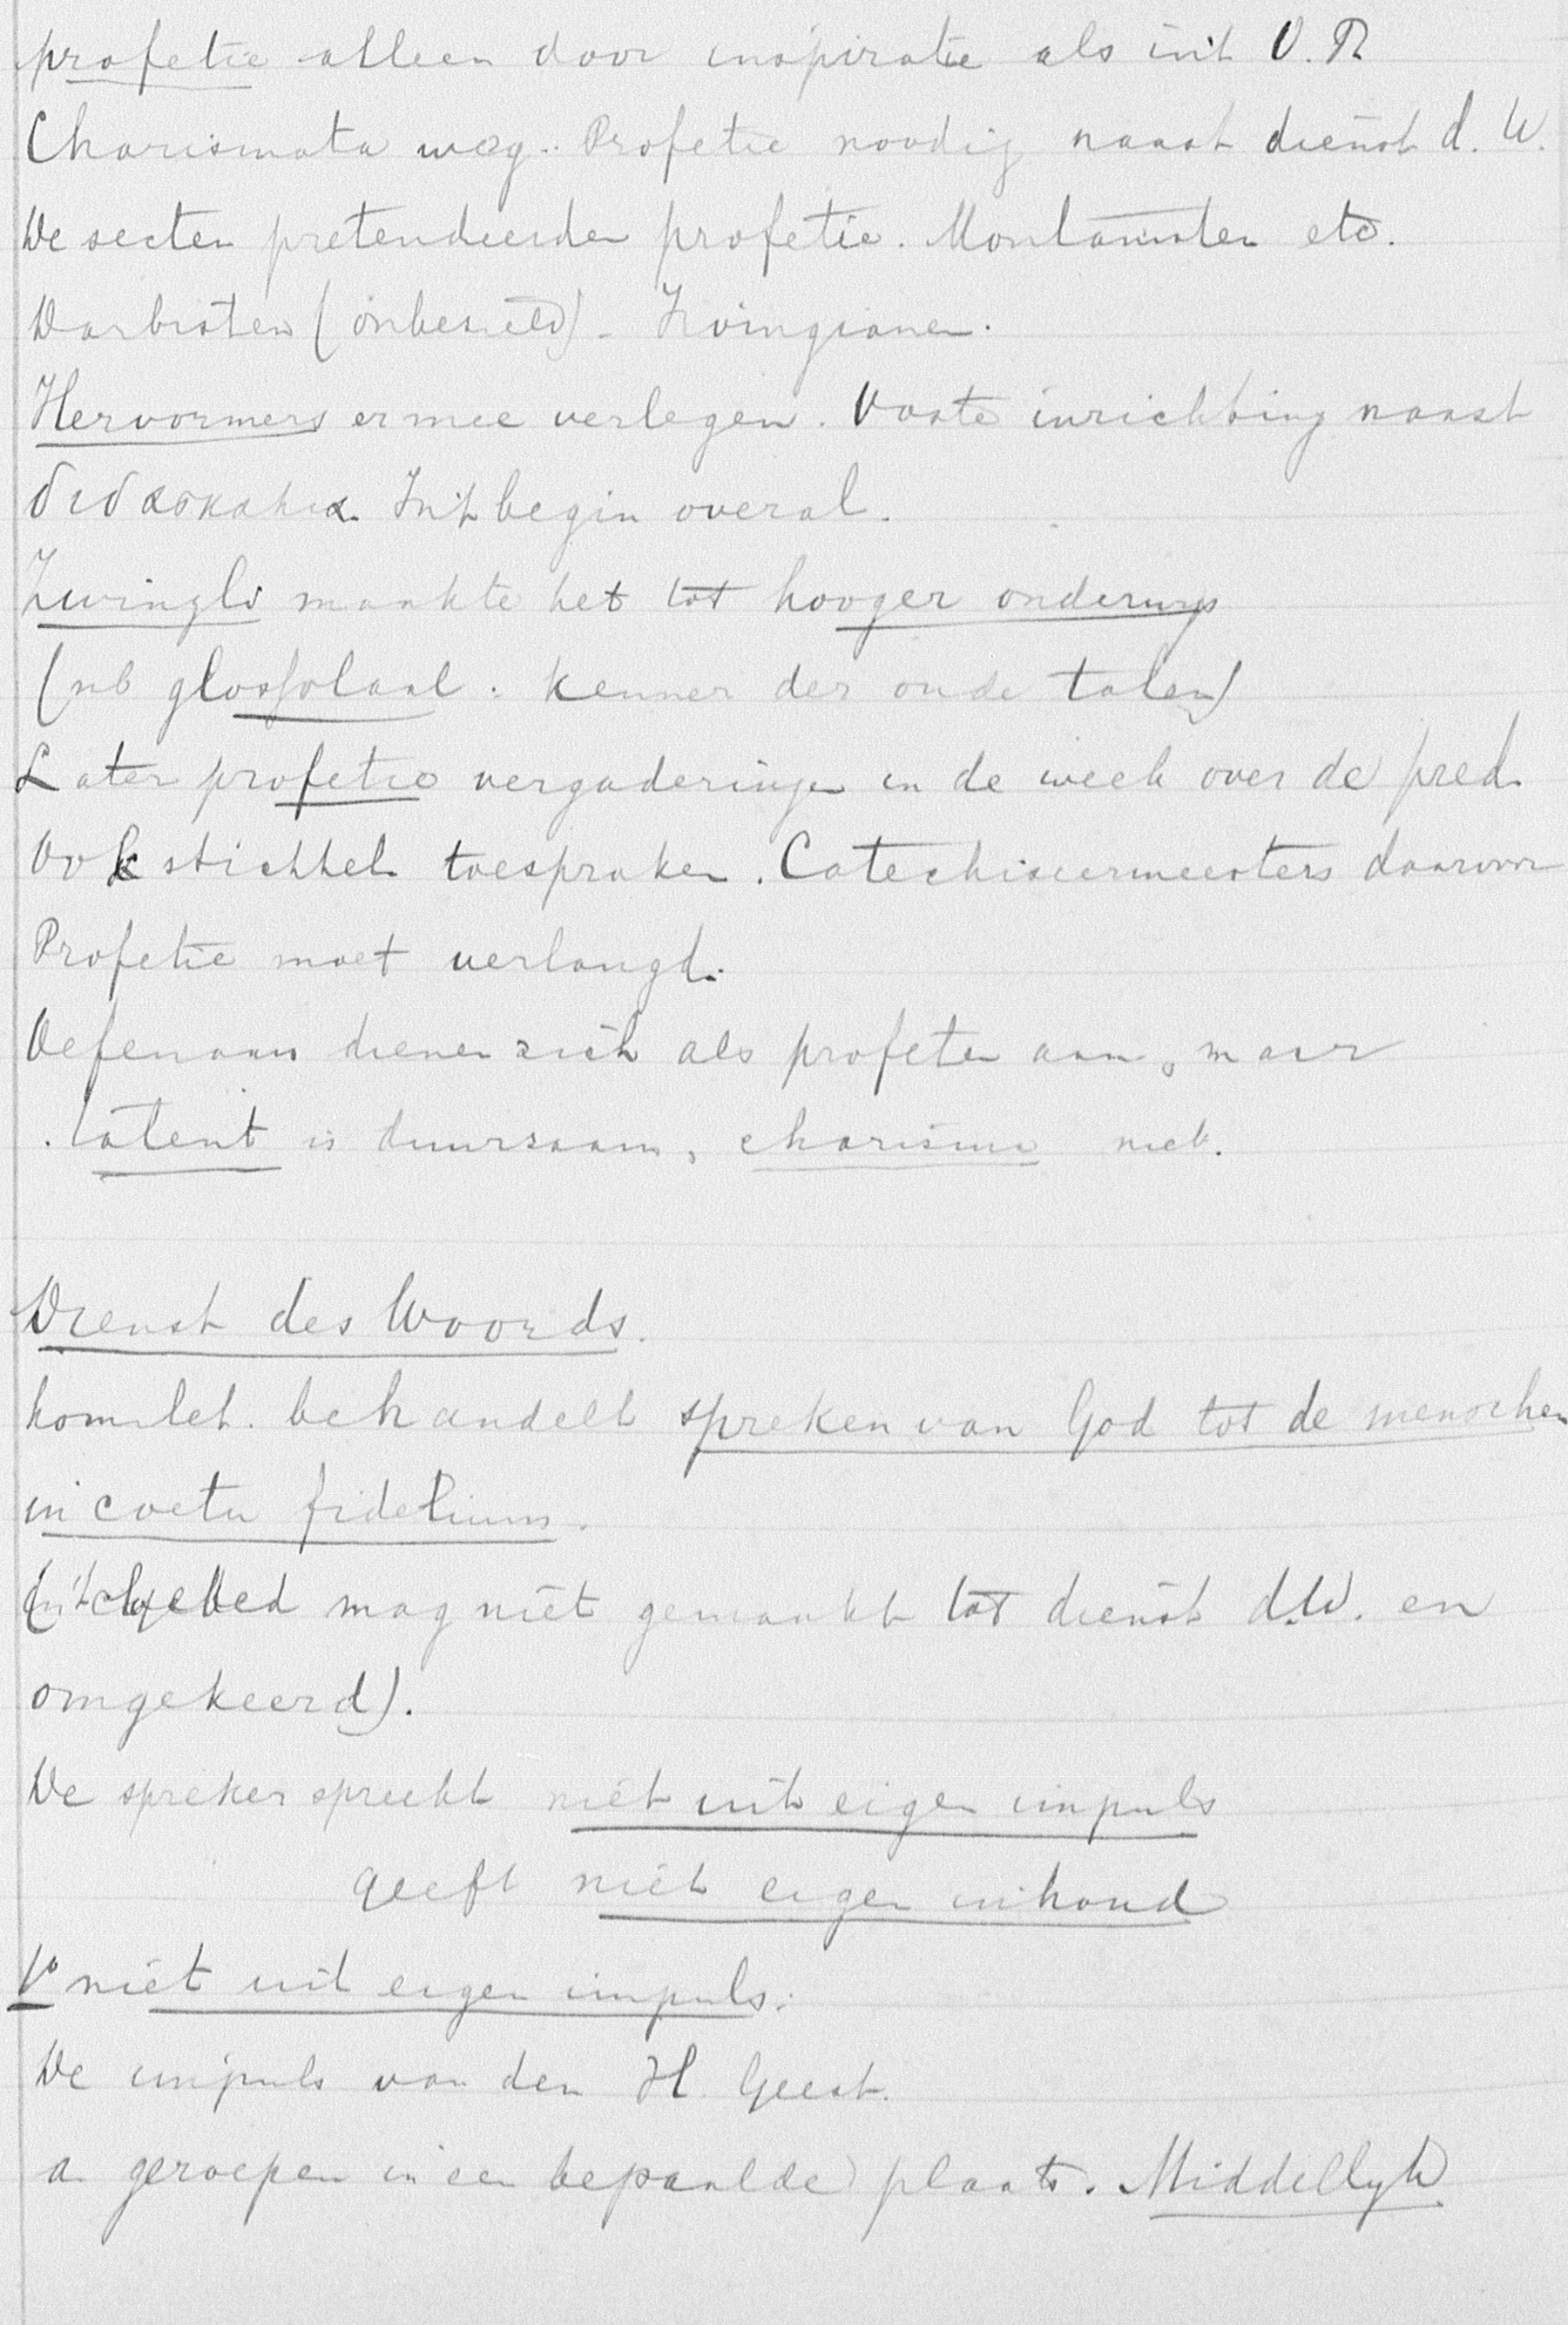 profetie alleen door inspiratie als in't O.T.
Charismata weg. Profetie noodig naast dienst d. W.
De secten pretendeerden profetie. Montanisten etc.
Darbisten (onbezield) - Irvingianen.
Hervormers ermee verlegen. Vaste inrichting naast
διδασκαλια. In't begin overal.
Zwingli maakte het tot hooger onderwys
(nb glossolaal: kenner der oude talen)
Later profetie vergaderingen in de week over de pred.
Ook stichtel. toespraken. Catechiseermeesters daarvoor
Profetie moet verlangd.
Oefenaars dienen zich als profeten aan, maar
talent is duurzaam, charisma niet.
Dienst des Woords.
homilet. behandelt spreken van God tot de menschen
in coetu fidelium.
gebed mag niet gemaakt tot dienst d.W. en
omgekeerd).
De spreker spreekt niet uit eigen impuls
geeft niet eigen inhoud
1° niet uit eigen impuls:
De impuls van den H. Geest.
a geroepen in een bepaalde plaats. Middellyk